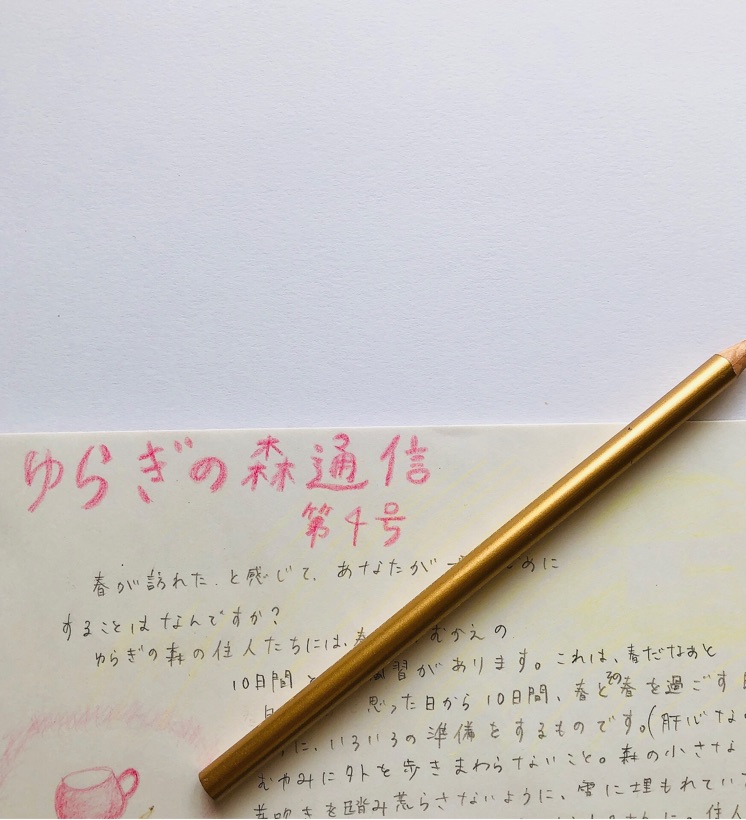 ゆらぎの森通信
第4号
春が訪れた、と感じて、あなたが めに
することはなんですか?
ゆらぎの森の住人たちには、春 むかえの
10日間と 習があります。これは、春だなあと
思った日から10日間、春と約春を過ごす
に、いろいろの準備をするものです。(肝心な
むやみに外を歩きまわらないこと。森の小さな
芽吹きを踏み荒らさないように、雪に埋もれてい
住人